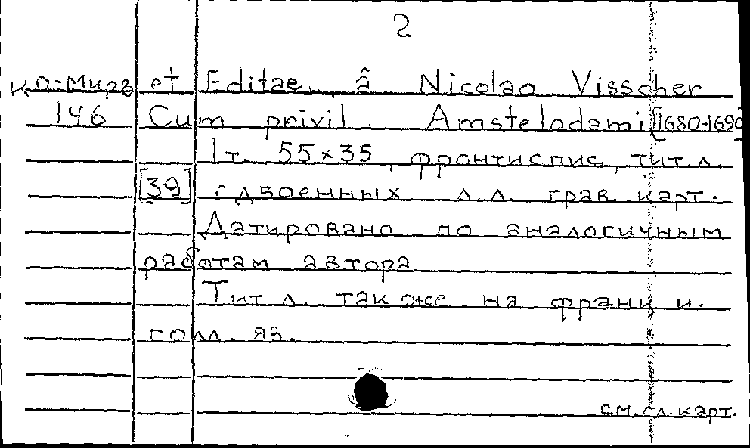 2
К.О:Мира et Editae â Nicolao Visscher
146 Cum privil. Amstelodami [1680-1690
1 т. 55×35, фронтиспис, тит. л.
[39] сдвоенных л.л. грав. карт.
Датировано по аналогичным
работам автора
Тит л. также на франц и.
голл. яз.
см. сл. карт.